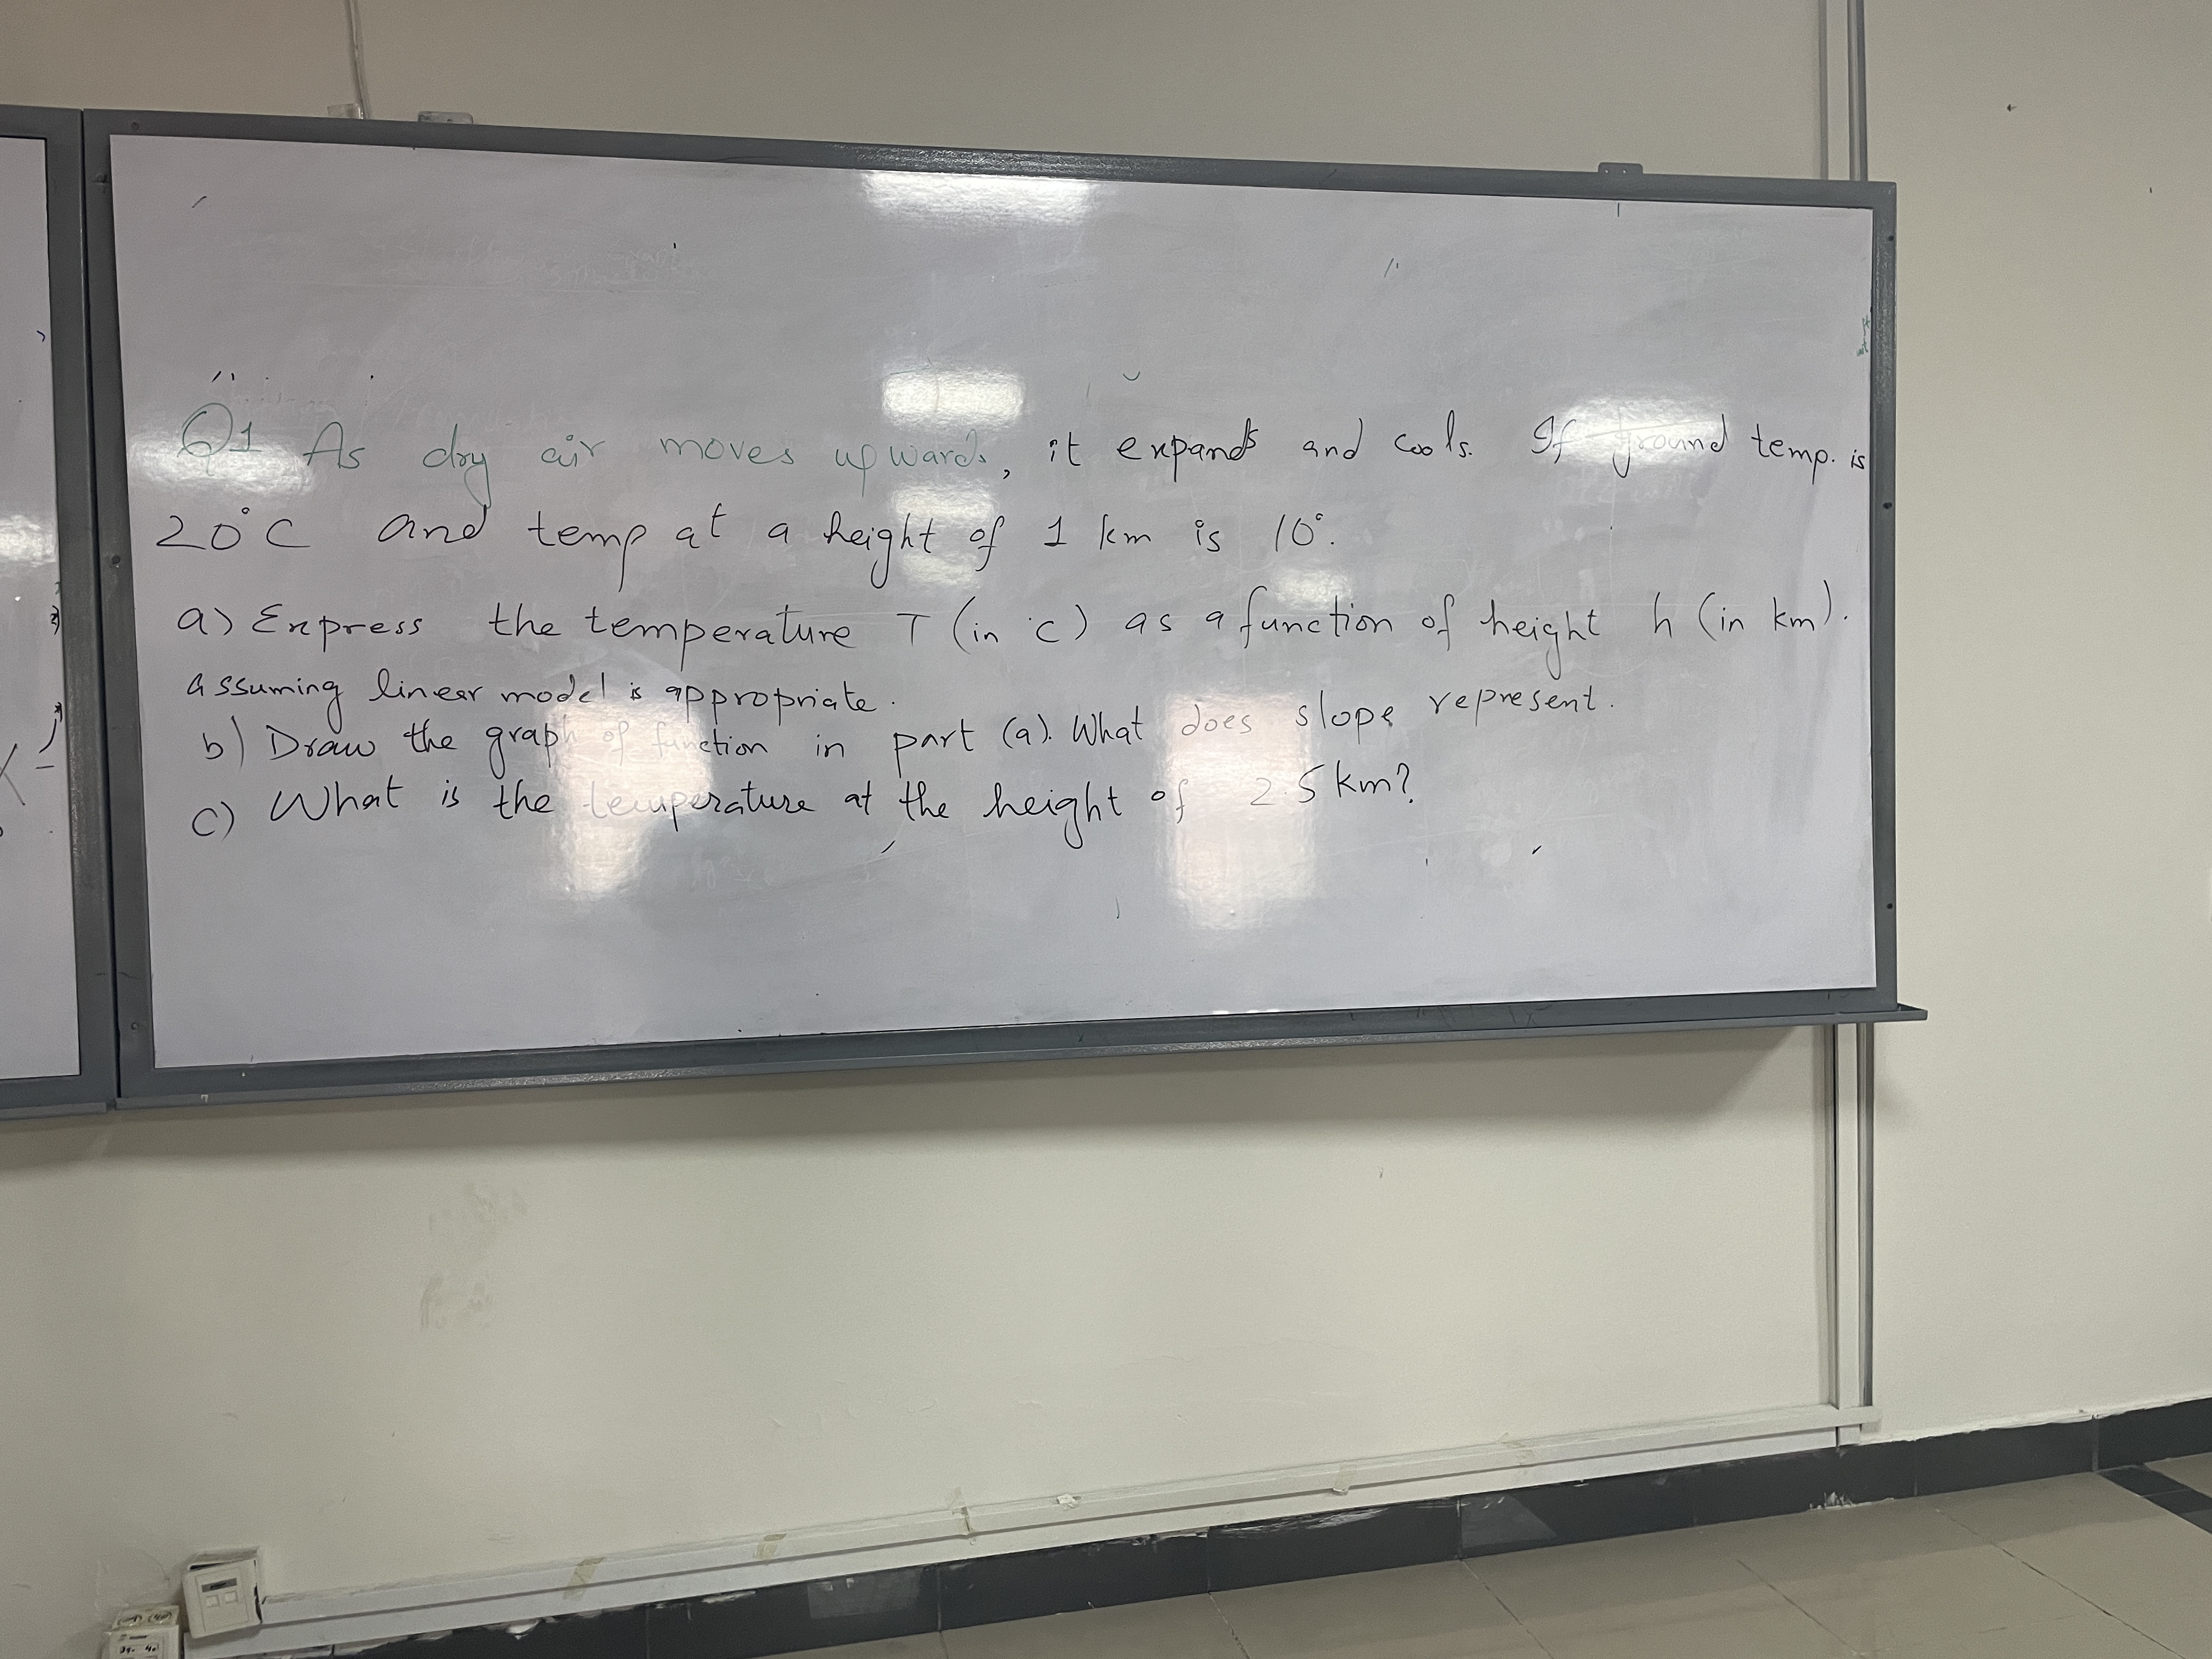 Q1 As dry air moves upwards, it expands and cools. If ground temp. is
20°C and temp at a height of 1 km is 10°.
a) Express the temperature T (in °c) as a function of height h (in km).
assuming linear model is appropriate.
b) Draw the graph of function in part (a). What does slope represent.
c) What is the temperature at the height of 2.5 km?